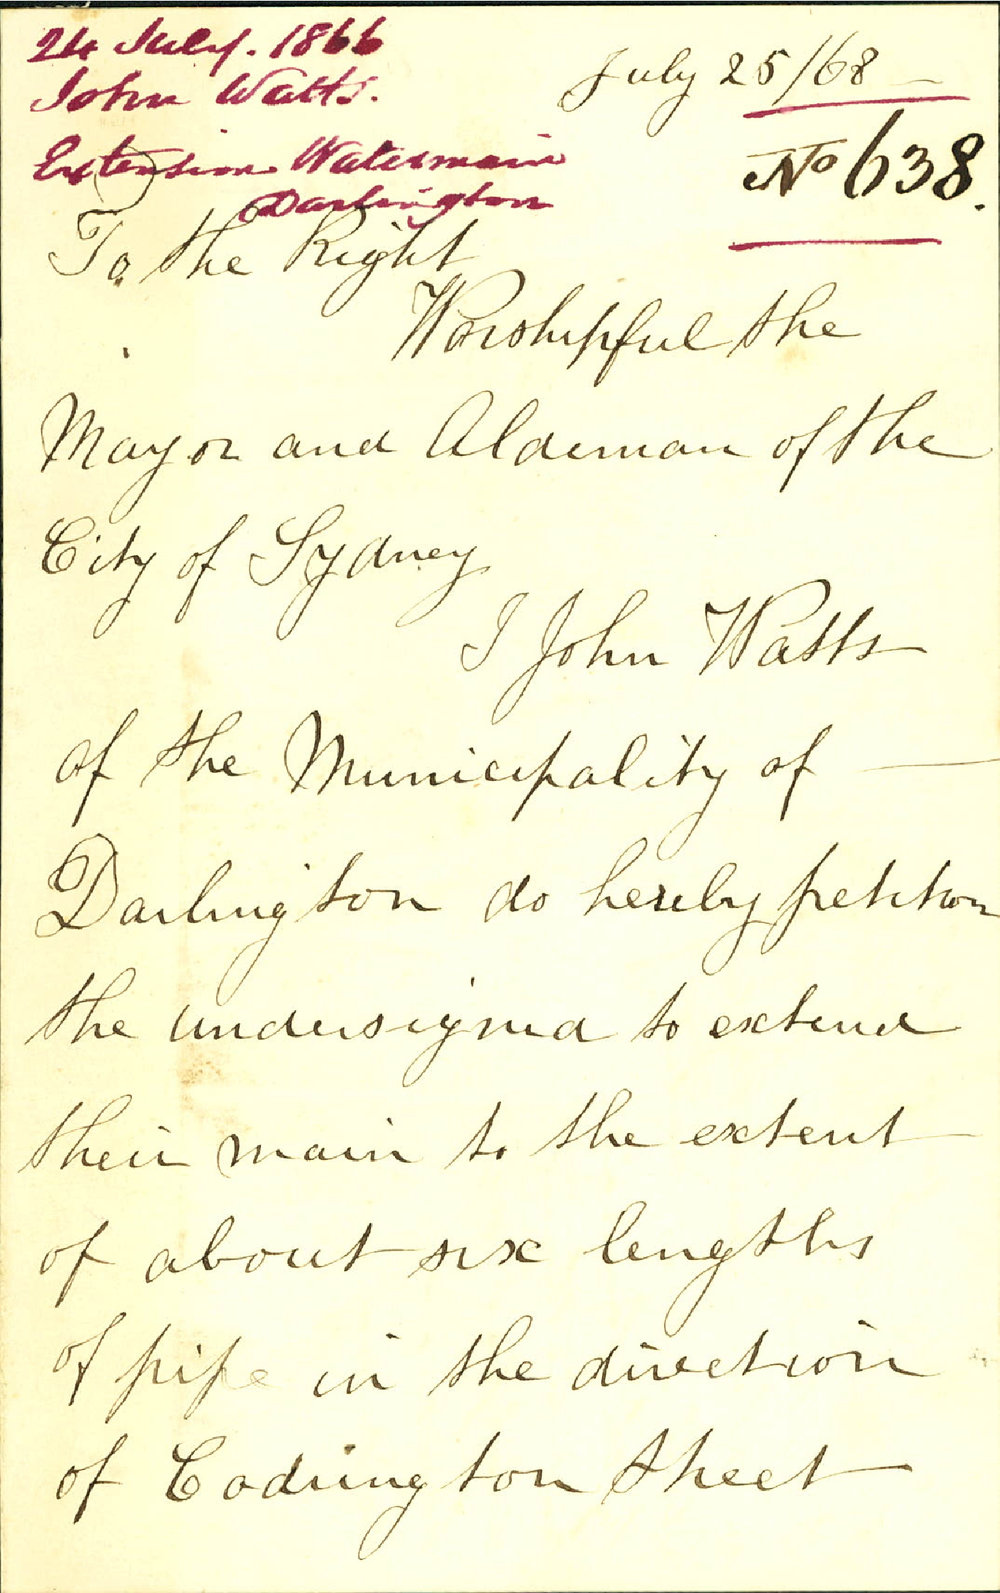 24 July. 1866
John Watts.
Extension Watermain
Darlington
July 25/68
No 638.
To the Right
Worshipful the
Mayor and Aldeman of the
City of Sydney
I John Watts
of the Municipality of
Darlington do hereby petition
the undersigned to extend
their main to the extent
of about six lengths
of pipe in the direction
of Codrington Street